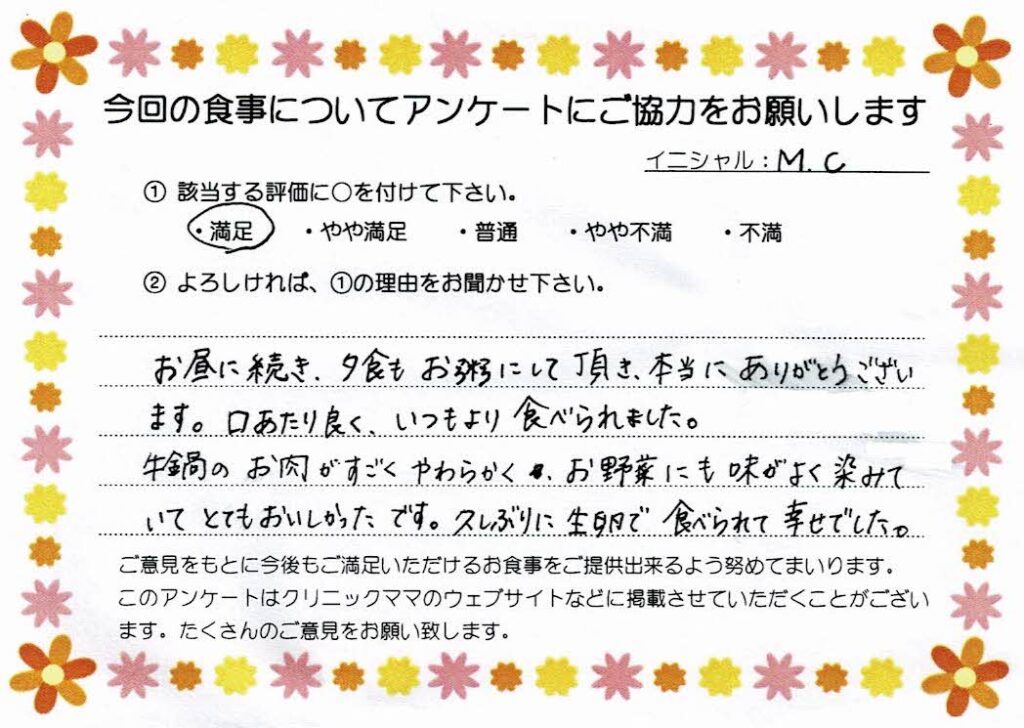 今回の食事についてアンケートにご協力をお願いします
イニシャル：M.C
① 該当する評価に○を付けて下さい。
・満足 ・やや満足 ・普通 ・やや不満 ・不満
② よろしければ、①の理由をお聞かせ下さい。
お昼に続き、夕食もお粥にして頂き、本当にありがとうござい
ます。口あたり良く、いつもより食べられました。
牛鍋のお肉がすごくやわらかく、お野菜にも味がよく染みて
いてとてもおいしかったです。久しぶりに生卵で食べられて幸せでした。
ご意見をもとに今後もご満足いただけるお食事をご提供出来るよう努めてまいります。
このアンケートはクリニックママのウェブサイトなどに掲載させていただくことがござい
ます。たくさんのご意見をお願い致します。